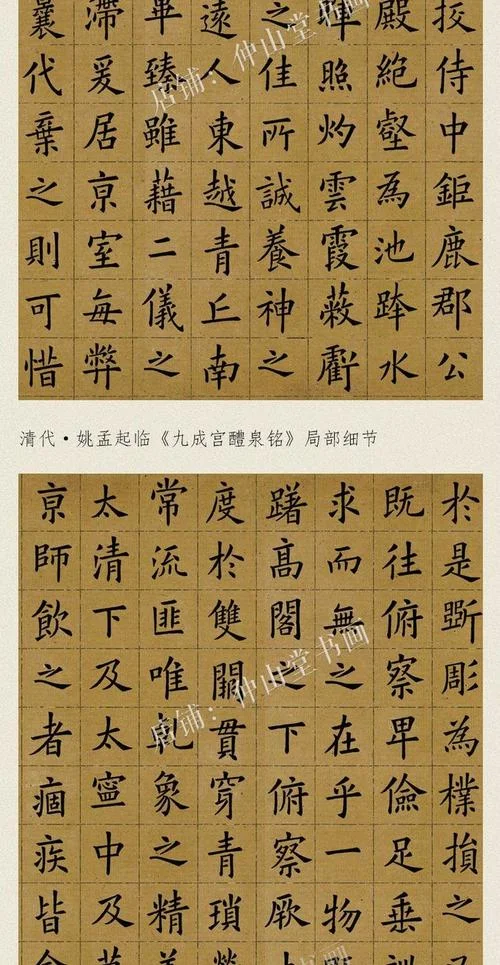 挍侍中鉅鹿郡公
殿絶壑為池跨水
暉照灼雲霞蔽虧
之佳所誠養神之
遠人東越青丘南
畢臻雖藉二儀之
滯爰居亰室每弊
曩代棄之則可惜
店铺：仲山堂书画
清代·姚孟起临《九成宫醴泉铭》局部细节
於是斲彫為樸損之
既往俯察卑儉足垂訓
求而無之在乎一物
躇高閣之下俯察厥
度於雙闕貫穿青瑣縈
常流匪唯乾象之精
太清下及太寧中及
亰師飲之者痼疾皆
店铺：仲山堂书画